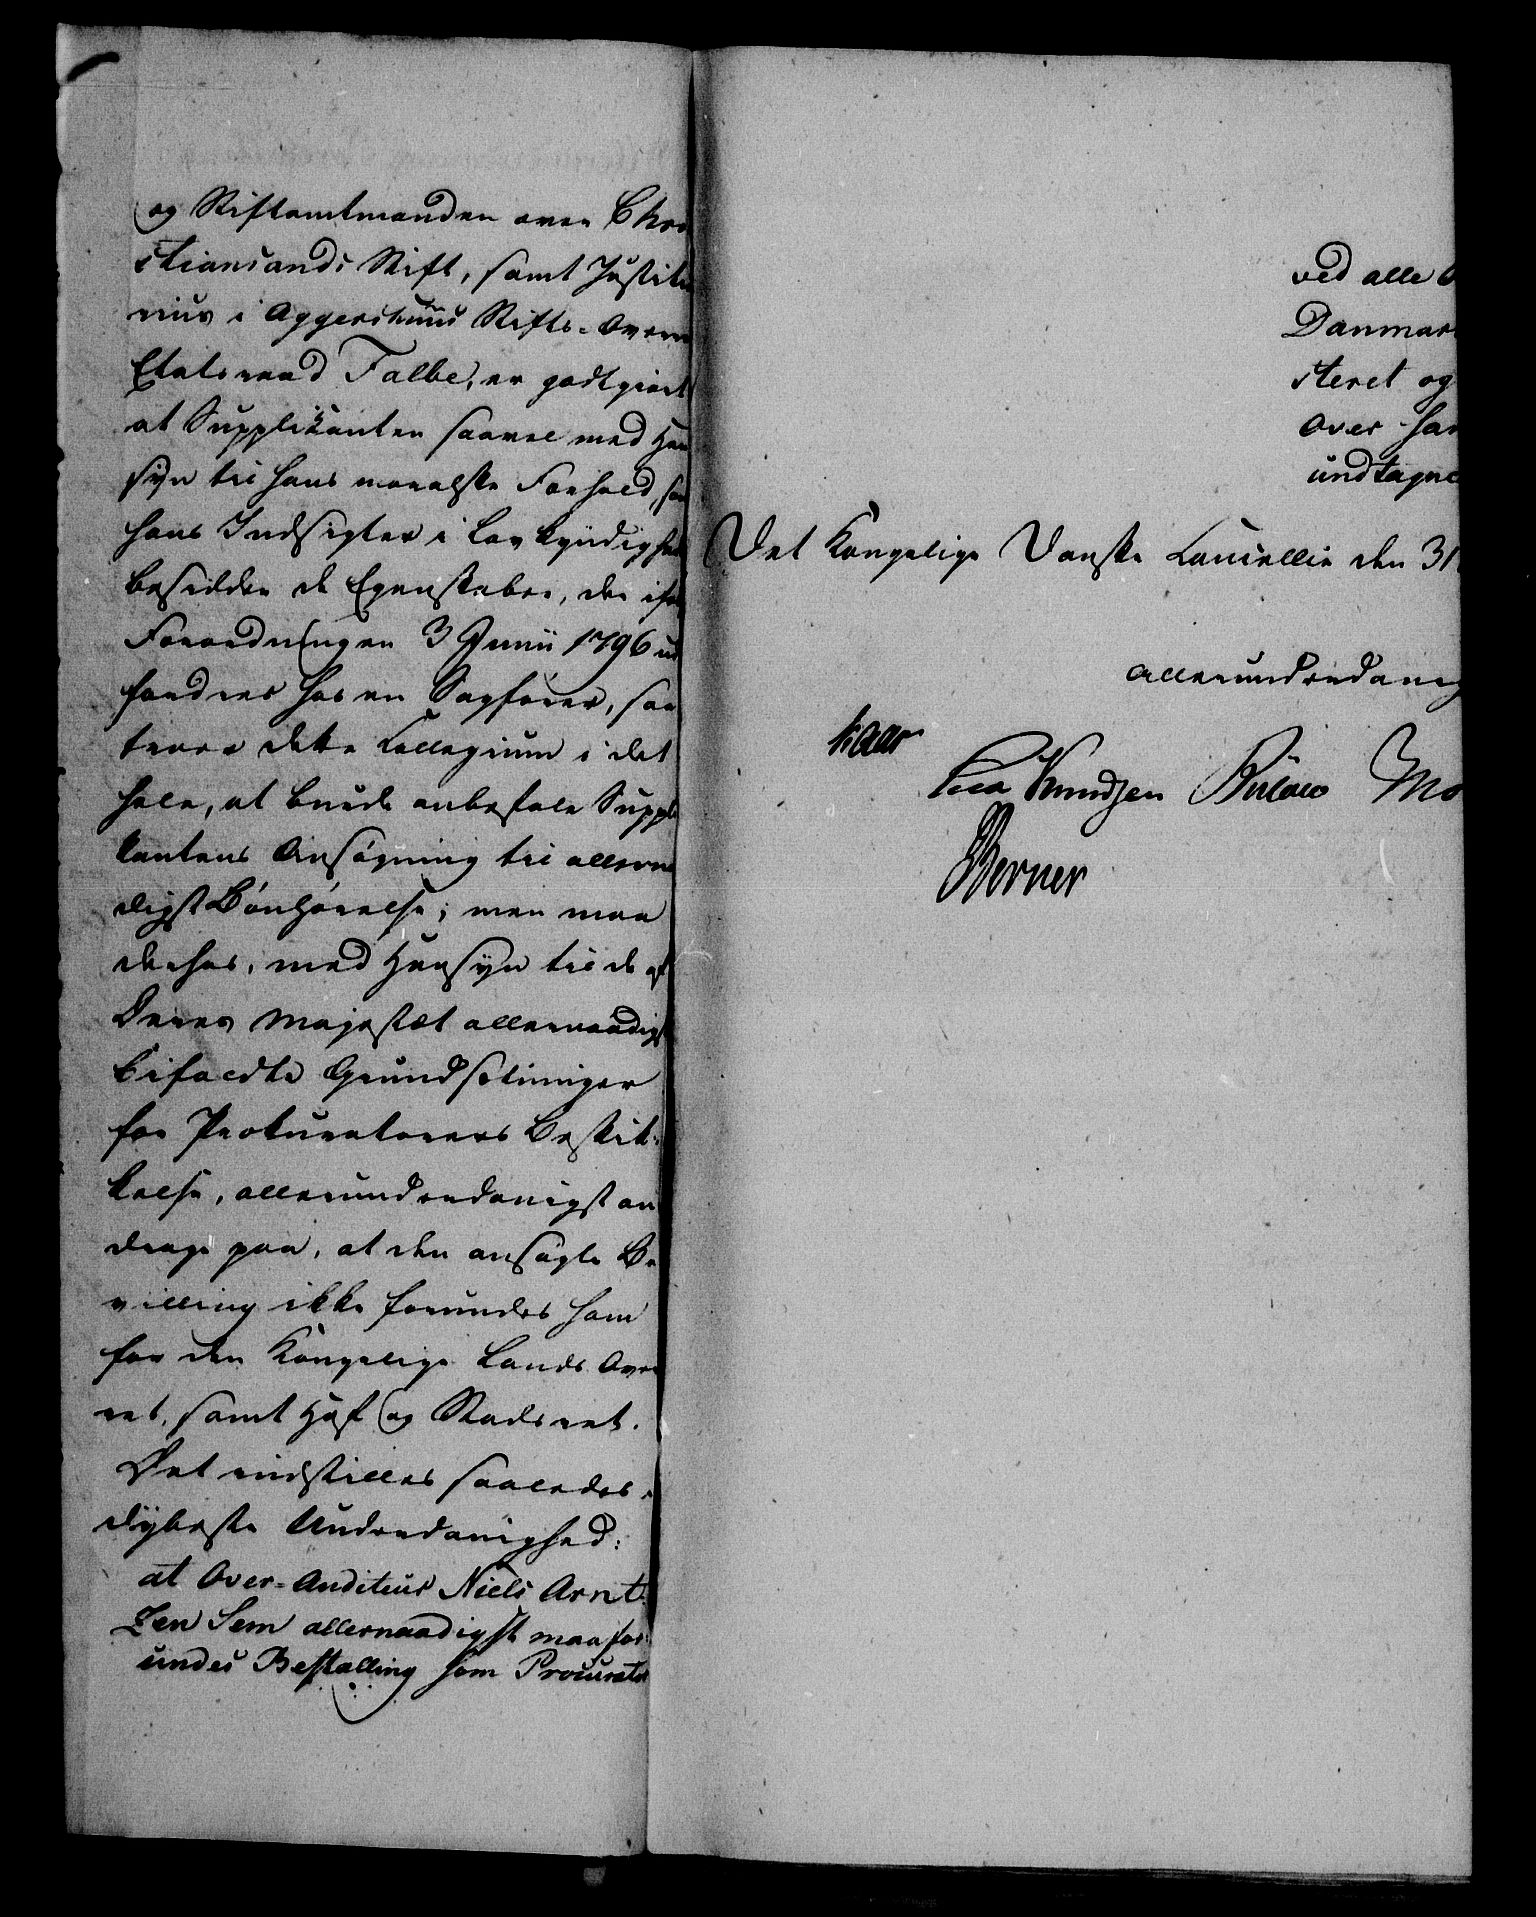 og Stiftamtmanden over Chri
stiansands Stift, samt Justitia
rius i Aggershuus Stifts-Overret
Etatsraad Falbe, er godtgiort
at Supplikanten saavel med Hen
syn til hans moralske Forhold, som
hans Indsigter i Lovkyndighed
besidder de Egenskaber, der ifølge
Forordningen 3 Junii 1796 ud
fordres hos en Sagfører, saa
troer dette Collegium i det
hele, at burde anbefale Suppli
kantens Ansøgning til allernaa
digst Bønhørelse; men maa
derhos, med Hensyn til de af
Deres Majestæt allernaadigst
bifaldte Grundsætninger
for Prokuratorers Beskik-
kelse, allerunderdanigst an
drage paa, at den ansøgte Be
villing ikke forundes ham
for den Kongelige Lands Over
ret, samt Hof og Stadsret.
Det indstilles saaledes i
dybeste Underdanighed:
at Over-Auditeur Niels Arnt
zen Sem allernaadigst maa for-
undes Bestalling som Procurator
ved alle
Danmar
steret og
Over
undtagne
Det Kongelige Danske Cancellie den 31
allerunderdanig
Kaas
Knudsen Bülow Mo
Berner